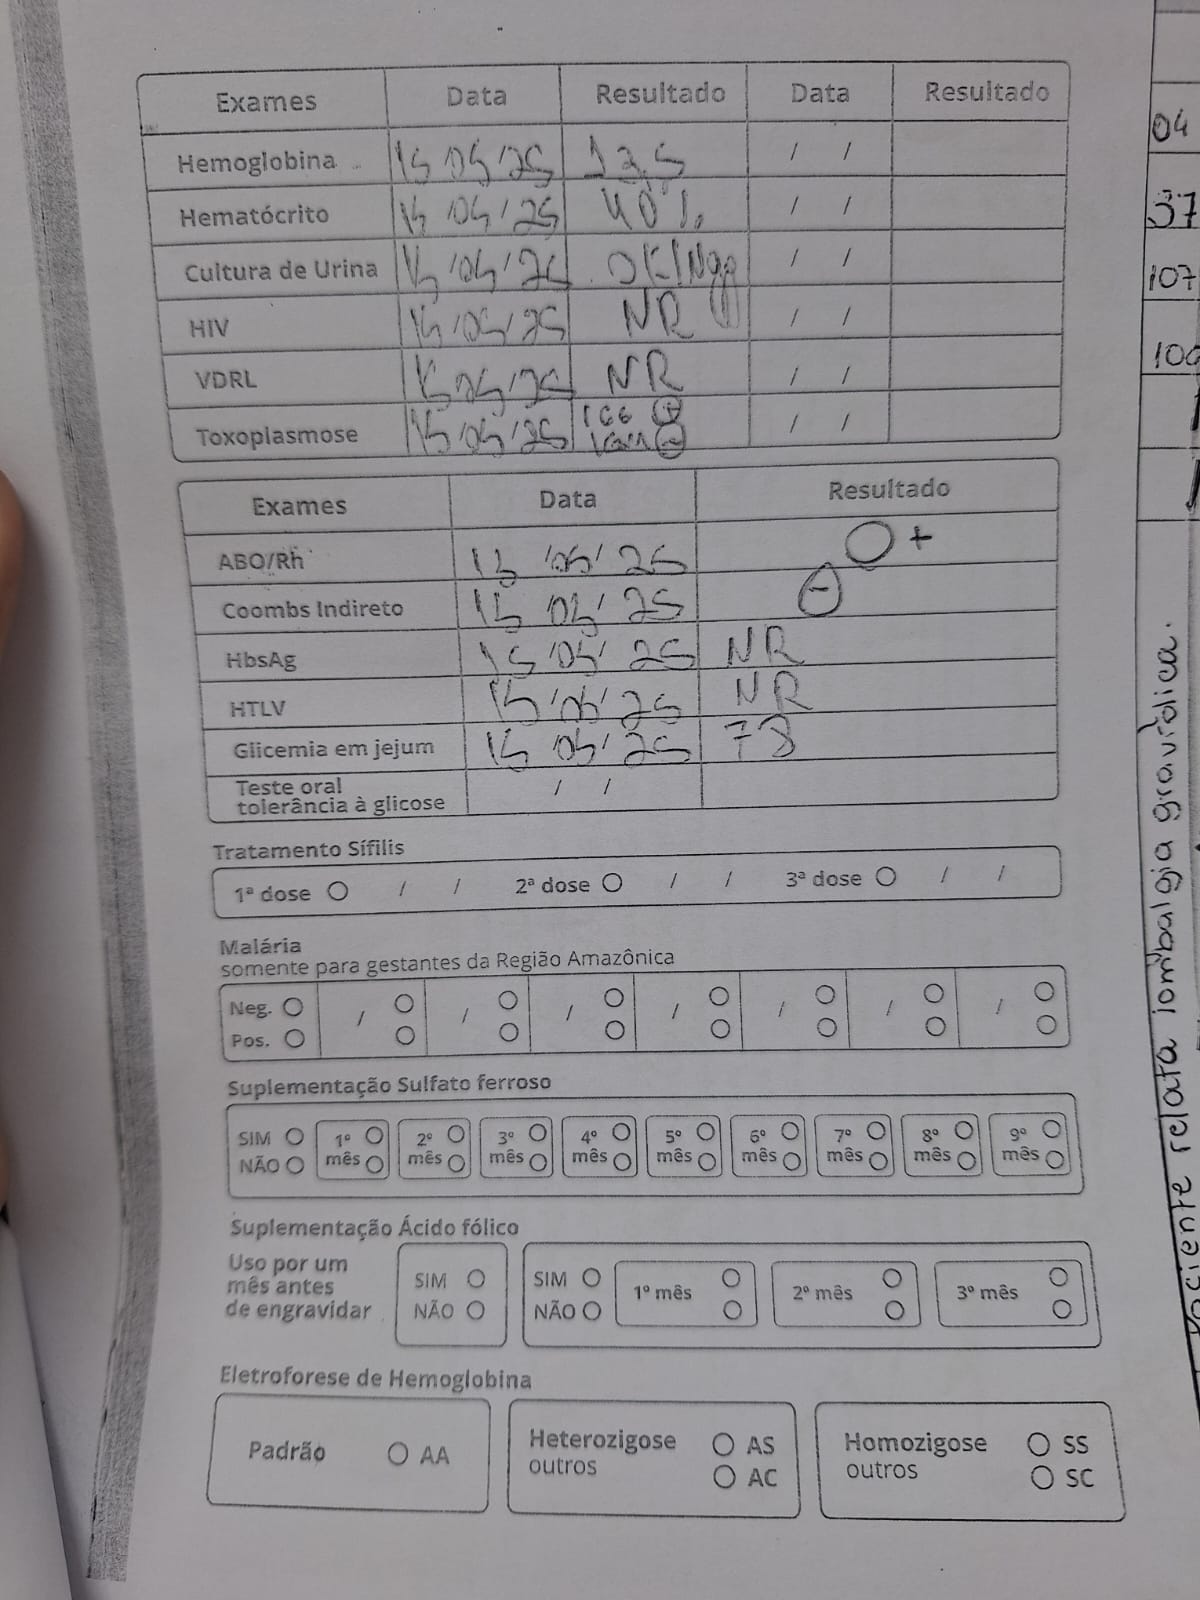 Exames Data Resultado Data Resultado
Hemoglobina 15 05 25 13,5 / /
Hematócrito 15 / 05 / 25 40%. / /
Cultura de Urina 15 / 05 / 25 OK/Neg / /
HIV 15 / 05 / 25 NR / /
VDRL 15 05 / 25 NR / /
Toxoplasmose 15 / 05 / 25 IGG + IGM - / /
Exames Data Resultado
ABO/Rh 15 / 05 / 25 O+
Coombs Indireto 15 05 / 25 -
HbsAg 15 / 05 / 25 NR
HTLV 15 / 05 / 25 NR
Glicemia em jejum 15 05 / 25 78
Teste oral
tolerância à glicose / /
Tratamento Sífilis
1ª dose / / 2ª dose / / 3ª dose / /
Malária
somente para gestantes da Região Amazônica
Neg.
Pos. / / / / / / /
Suplementação Sulfato ferroso
SIM 1º 2º 3º 4º 5º 6º 7º 8º 9º
NÃO mês mês mês mês mês mês mês mês mês
Suplementação Ácido fólico
Uso por um
mês antes
de engravidar
SIM
NÃO
SIM
NÃO
1º mês 2º mês 3º mês
Eletroforese de Hemoglobina
Padrão AA
Heterozigose AS
outros AC
Homozigose SS
outros SC
04
37
107
relata lombalgia gravídica.